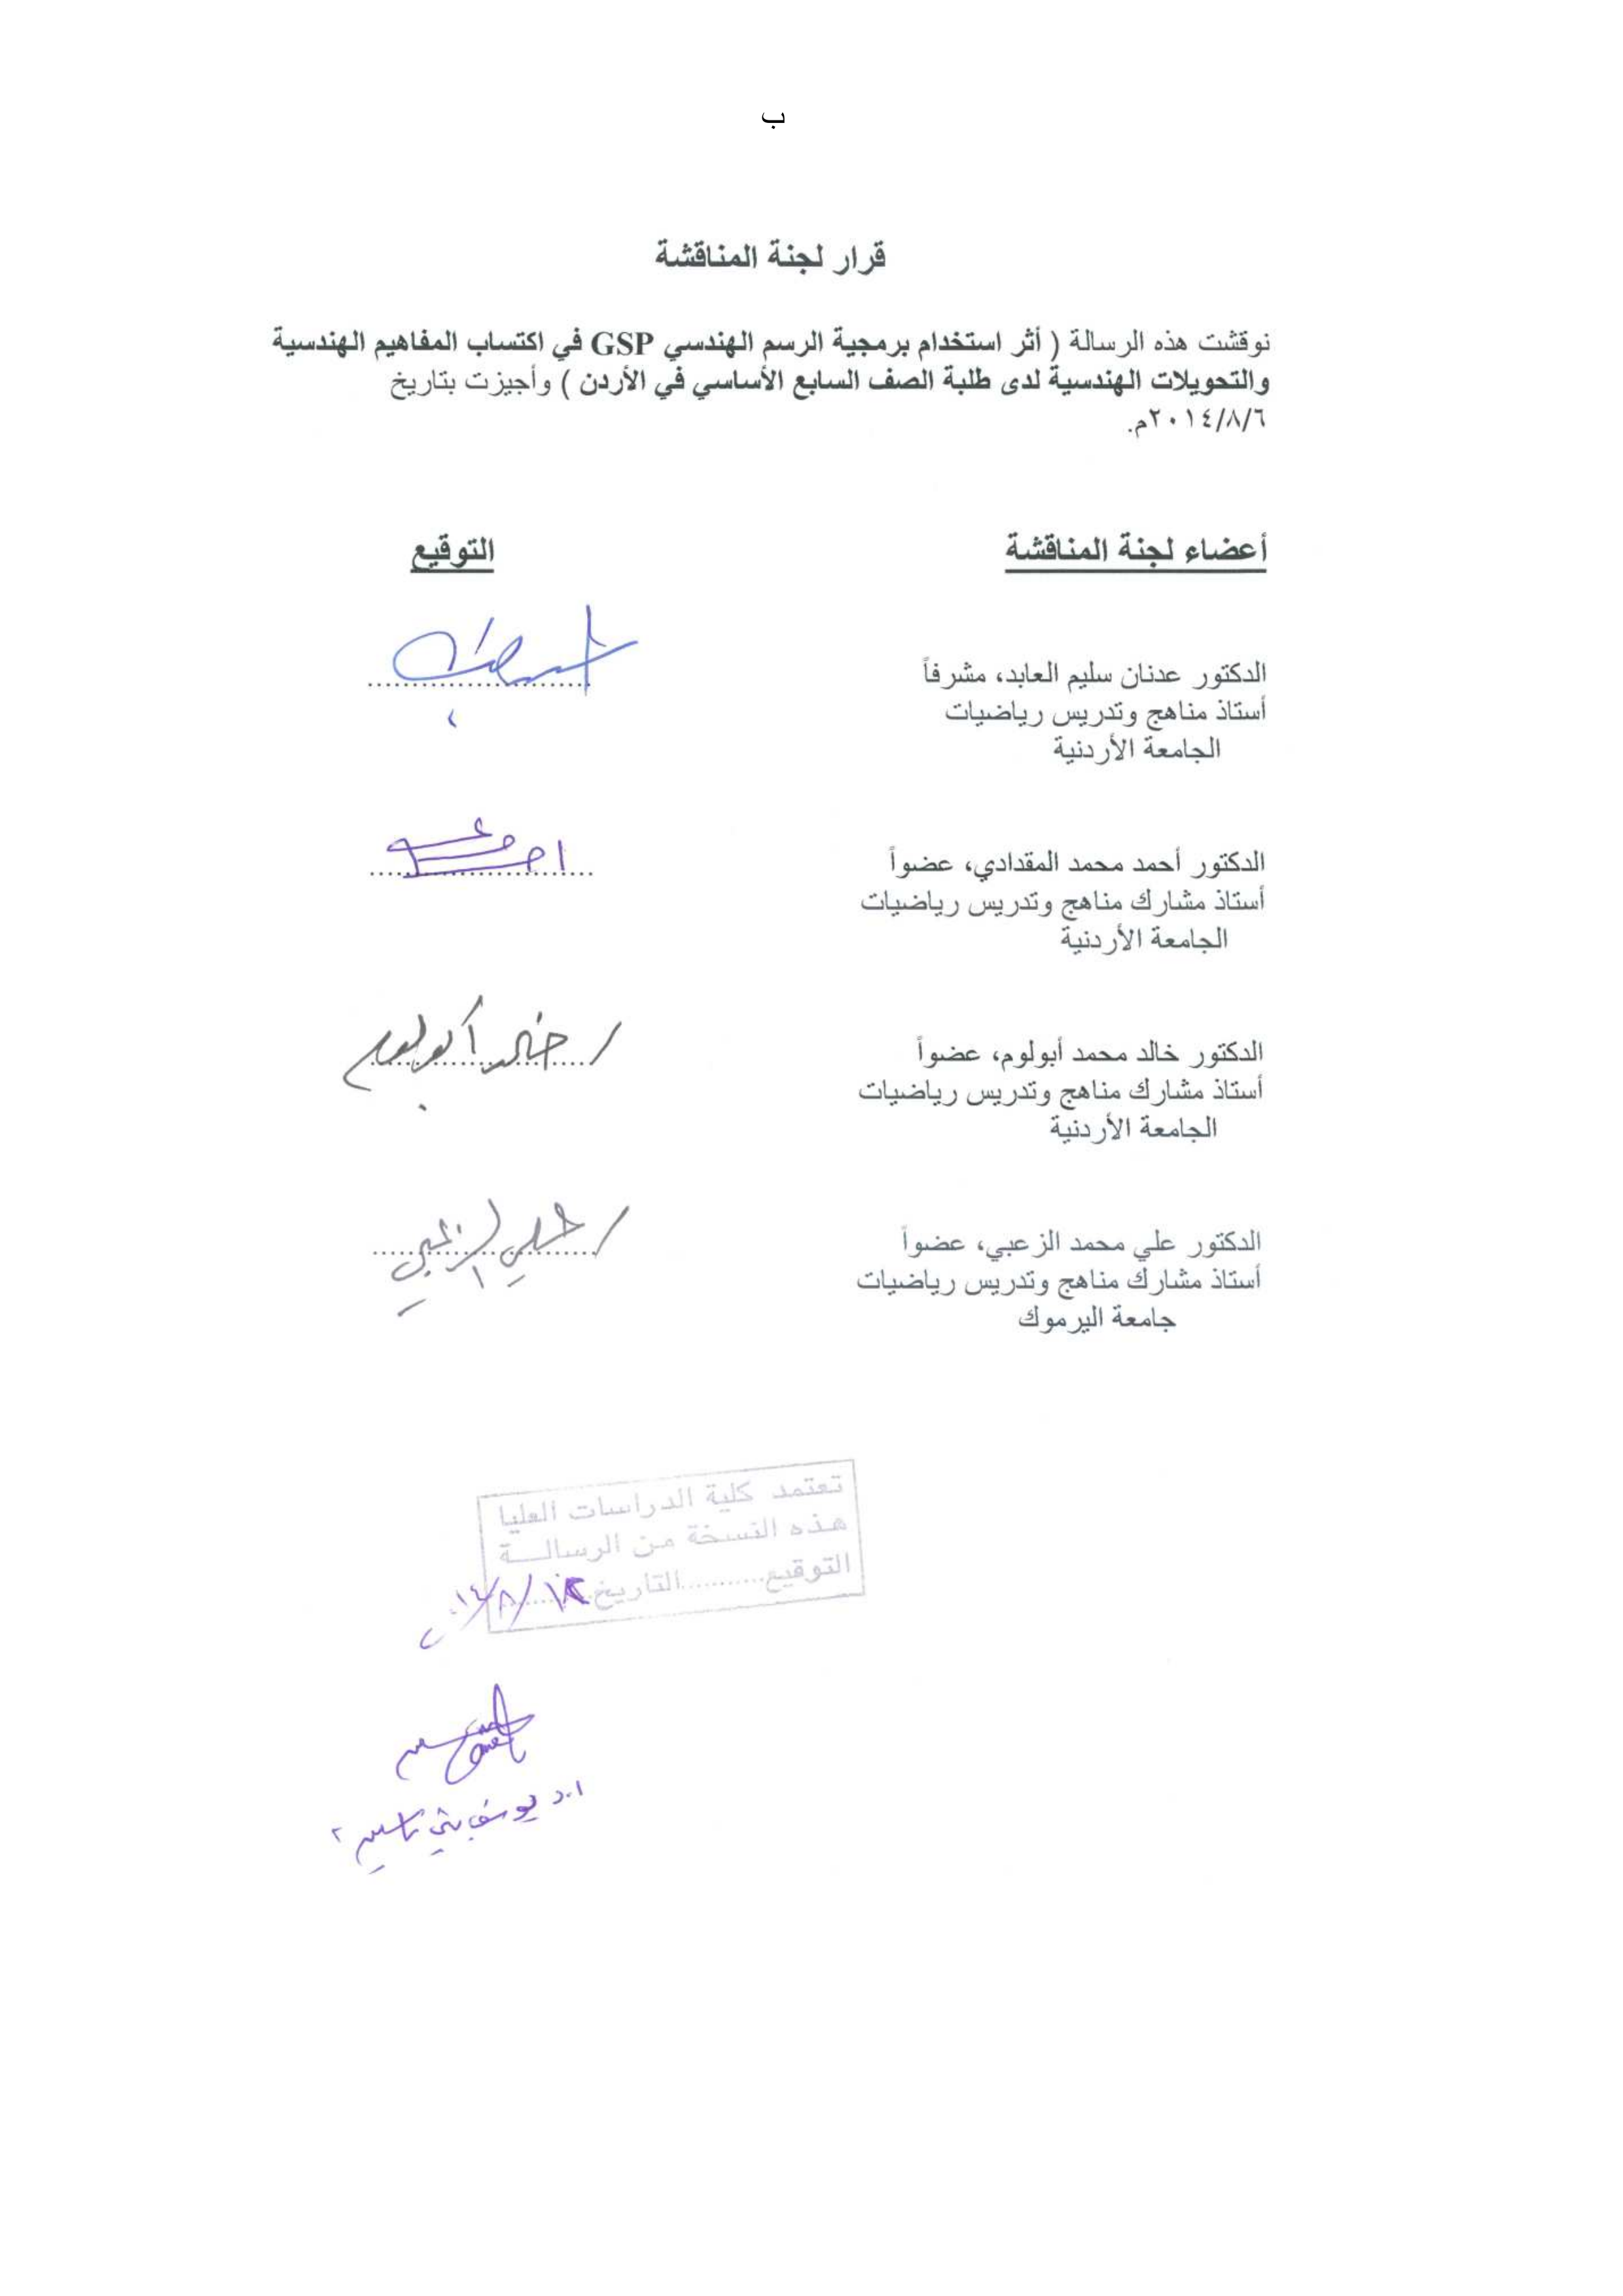 ب
قرار لجنة المناقشة
نوقشت هذه الرسالة ( أثر استخدام برمجية الرسم الهندسي GSP في اكتساب المفاهيم الهندسية
والتحويلات الهندسية لدى طلبة الصف السابع الأساسي في الأردن ) وأجيزت بتاريخ
٢٠١٤/٨/٦م.
أعضاء لجنة المناقشة التوقيع
الدكتور عدنان سليم العابد، مشرفاً
أستاذ مناهج وتدريس رياضيات
الجامعة الأردنية
الدكتور أحمد محمد المقدادي، عضواً
أستاذ مشارك مناهج وتدريس رياضيات
الجامعة الأردنية
الدكتور خالد محمد أبولوم، عضواً خالد أبولوم
أستاذ مشارك مناهج وتدريس رياضيات
الجامعة الأردنية
الدكتور علي محمد الزعبي، عضواً علي الزعبي
أستاذ مشارك مناهج وتدريس رياضيات
جامعة اليرموك
تعتمد كلية الدراسات العليا
هذه النسخة من الرسالـــة
التوقيع...........التاريخ